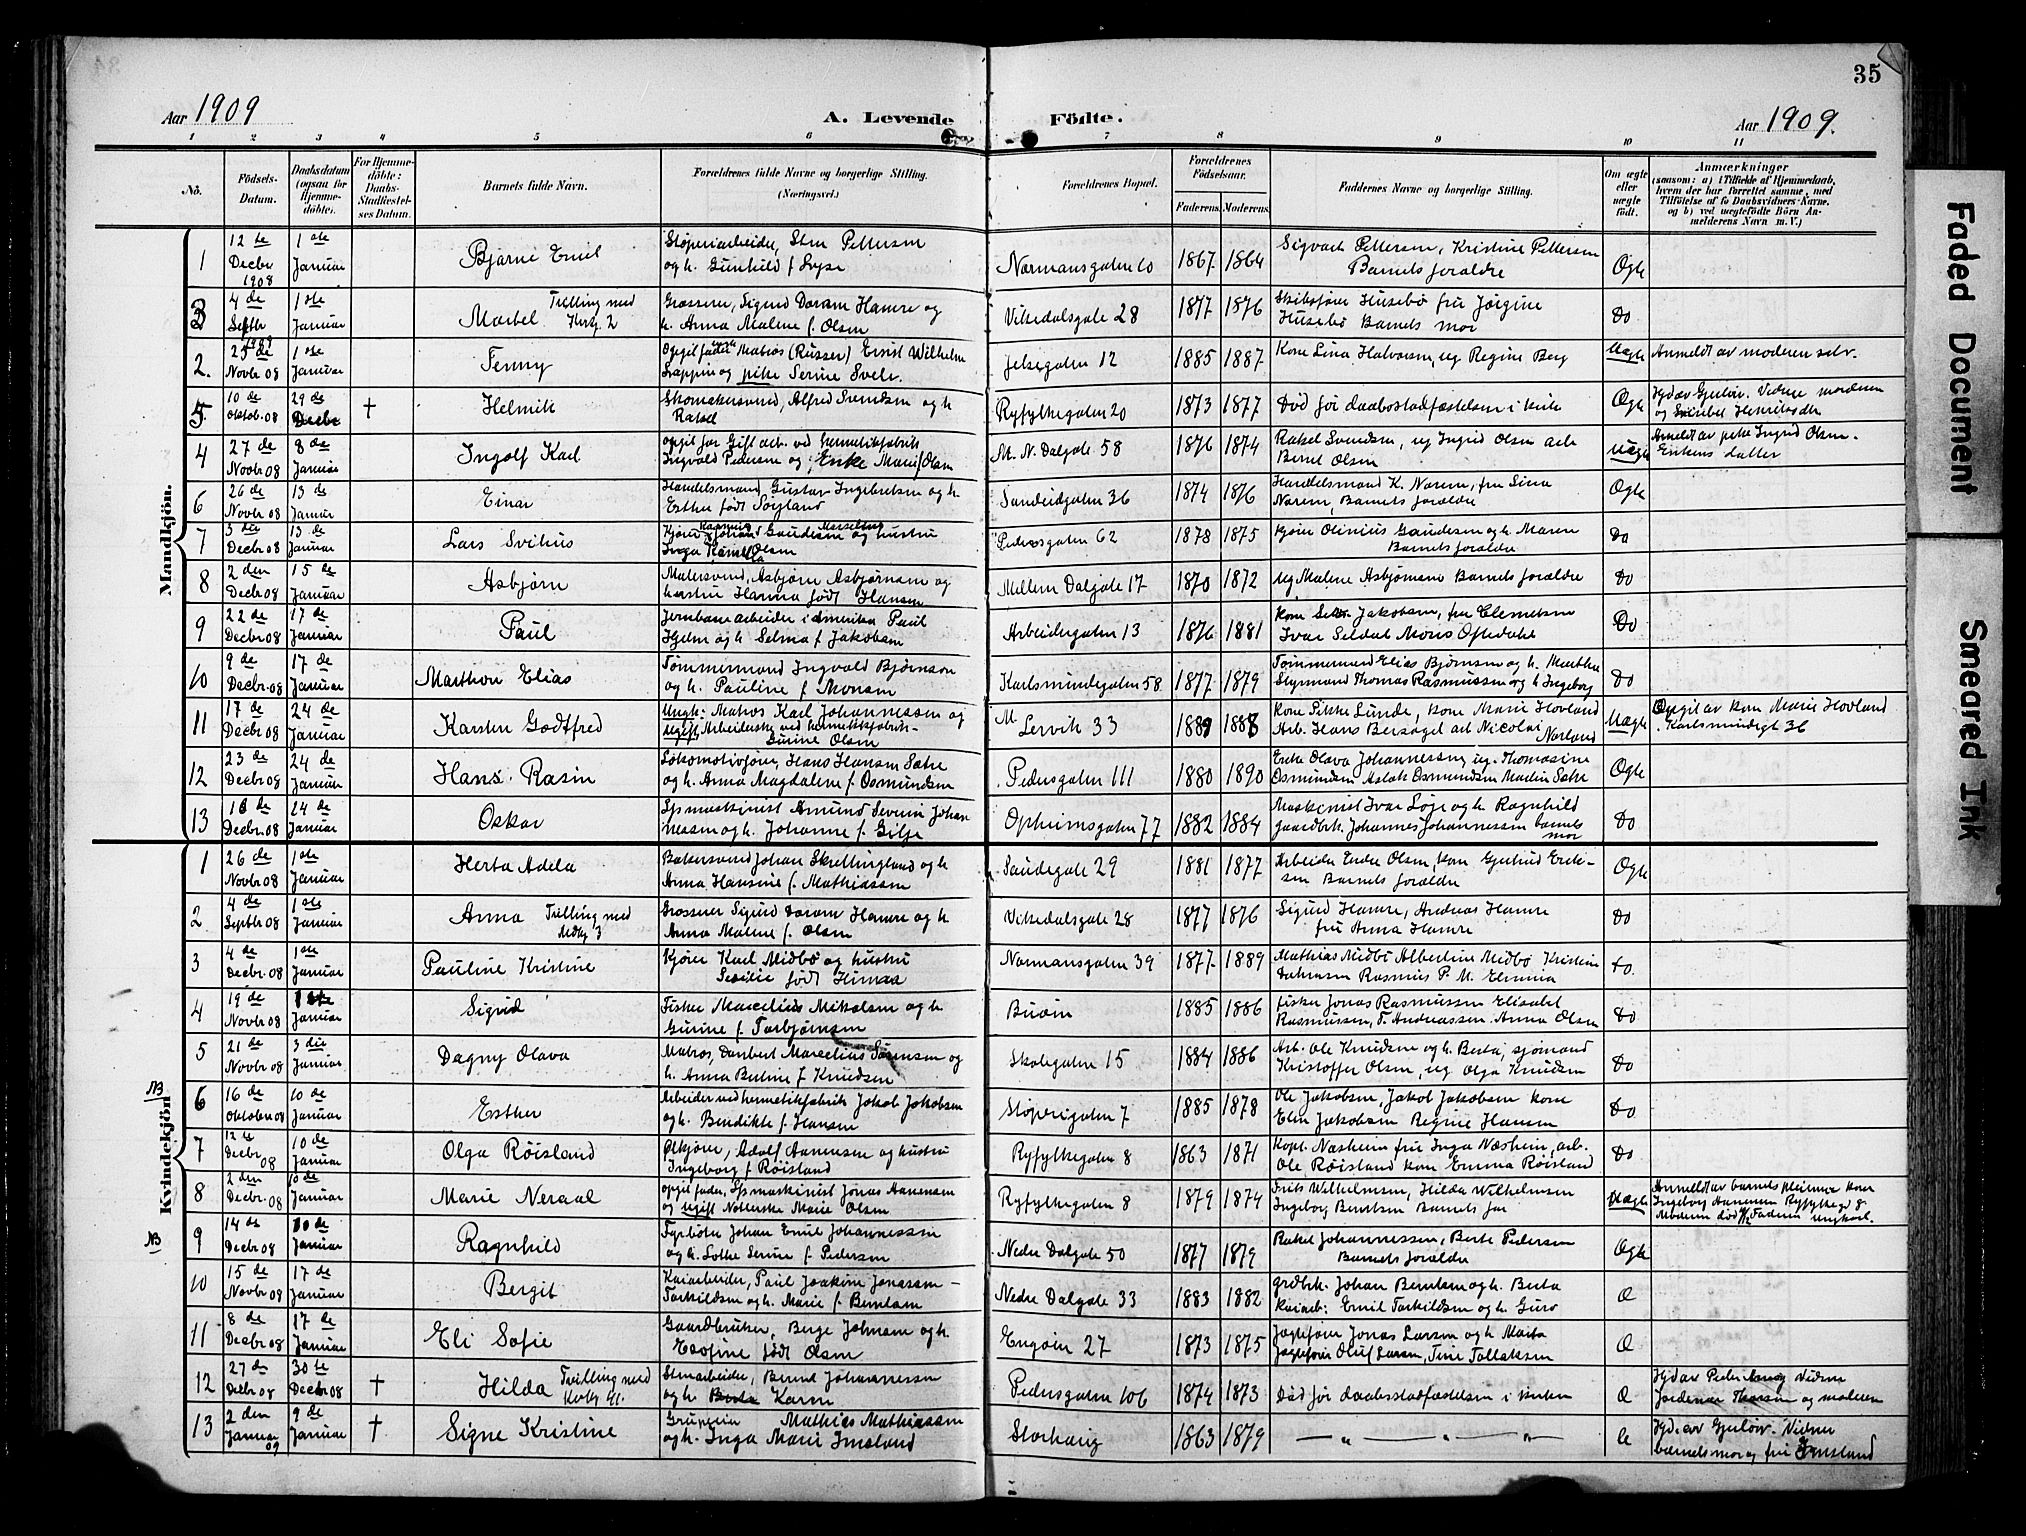 35
Aar 1909
A. Levende
Födte.
Aar 1909.
1 2 3 4 5 6 7 8 9 10 11
No.
Födsels-Datum.
Daabsdatum (ogsaa for Hjemme-döbte).
For Hjemme-döbte: Daabs-Stadfæstel-ses Datum.
Barnets fulde Navn.
Forældrenes fulde Navne og borgerlige Stilling. (Næringsvei.)
Forældrenes Bopæl.
Forældrenes Födselsaar.
Faderens. Moderens.
Faddernes Navne og borgerlige Stilling.
Om ægte eller uægte födt.
Anmærkninger
(saasom: a) i Tilfælde af Hjemmedaab, hvem der har forrettet samme, med Tilföielse af to Daabsvidners Navne, og b) ved uægtefödte Börn An-melderens Navn m. V.)
Mandkjön.
1 12te Decbr 1908 1ste Januar Bjarne Emil
og h. Gunhild f Lyse
Normansgaten 60 1867. 1864 Sigvart Pettersen, Kristine Pettersen
Barnets forældre Ægte
3 4de Septbr 1ste Januar Trilling med Kvkj. 2
Grosserer, Sigurd Hamre og
h. Anna Maline f. Olsen
Vikedalsgate 28 1877 1876 Skibsfører Husebø fru Jørgine
Husebø Barnets mor Do
2. 25de Novbr 08 1ste Januar Jenny
Opgit fader Matros (Russer) Ernst Wilhelm
og pike Serine
Jelsegaten 12 1885 1887 Kone Lina Halvorsen, ug Regine Berg Uægte Anmeldt av moderen selv.
5 10de Oktob. 08 29de Decbr † Helmik
Skomakersvend, Alfred Svendsen og h
Rakel
Ryfylkegaten 20 1873 1877 Død før daabsstadfæstelsen i kirke Ægte
4 27de Novbr 08 8de Januar Ingolf Karl
opgit far Gift arb. ved Hermetikfabrik
Ingvald Pedersen og Enke Marie f Olsen
M. N. Dalgate 58 1876 1874 Rakel Svendsen, ug Ingrid Olsen arb
Bernt Olsen Uægte Anmeldt av pike Ingrid Olsen.
Enkens datter
6 26de Novbr 08 13de Januar Einar
Handelsmand, Gustav Ingebretsen og h.
Esther født
Sandeidgaten 36 1874 1876 Handelsmand K. Narem, fru Lina
Narem, Barnets forældre Ægte
7 3die Decbr 08 13de Januar Lars
og hustru
Inga Olsen
Pedersgaten 62 1878 1875 Kjører Olinius Gaudesen og h. Maren
Barnets forældre Do
8 2den Decbr 08 15de Januar Asbjørn
Malersvend, Asbjørn Asbjørnsen og
hustru Hanna født Hansen
Mellem Dalgate 17 1870 1872 ug Malene Asbjørnsen Barnets forældre Do
9 22de Decbr 08 17de Januar Paul
Jernbanearbeider i Amerika Paul
Hjelm og h Selma f Jakobsen
Arbeidergaten 13 1876 1881 Kone Jakobsen, fru Clemetsen
Ivar Seldal Mons Oftedal Do
10 9de Decbr. 08 17de Januar Marthon Elias
Tømmermand Ingvald Bjørnson
og h. Pauline f Monsen
Karlsmindegaten 58 1877 1879 Tømmermand Elias Bjørnsen og h. Marthe
Styrmand Thomas Rasmussen og h Ingeborg Do
11 17de Decbr 08 24de Januar Karsten Godtfred
Ungk: Matros Karl Johannessen og
ugift Arbeiderske ved hermetikfabrik
Gurine Olsen
M Lervik 33 1889 1888 Kone Pikke Lunde, kone Marie Hovland
Arb. Hans arb Nicolai Norland Uægte Opgit av kone Marie Hovland
Karlsmindegt 36
12 23de Decbr 08 24de Januar Hans. Rasin
Lokomotivfører, Hans Hansen Sætre
og h. Anna Magdalene f. Osmundsen
Pedersgaten 111 1880 1890 Enke Olava Johannessen, ug. Thomasine
Osmundsen Aslak Osmundsen Martin Sætre Ægte
13 18de Decbr. 08 24de Januar Oskar
Spsmaskinist Amund Severin Johan
nessen og h. Johanne f. Gilje
Opheimsgaten 77 1882 1884 Maskinist Ivar Løge og h. Ragnhild
gaardbrk. Johannes Johannessen barnets mor Do
Kvindekjön
1 26de Novbr 08 1ste Januar Herta Adela
Bakersvend Johan Skrettingland og h
Anna Hansine f. Mathiassen
Saudegate 29 1881 1877 Arbeider Endre Olsen, kone Gjertrud Erik-
sen Barnets forældre Ægte
2 4de Septbr 08 1ste Januar Anna Trilling med Mdkj 3
Grosserer Sigurd Hamre og h
Anna Maline f. Olsen
Vikedalsgate 28 1877 1876 Sigurd Hamre, Andreas Hamre
fru Anna Hamre Do
3 4de Decbr 08 1ste Januar Pauline Kristine
Kjører Karl Midbø og hustru
født
Normansgaten 39 1877. 1889 Mathias Midbø Albertine Midbø Kristine
Johnsen Rasmus P. M. Do.
4 19de Novbr 08 Januar Sigrid
Fisker Marcelius Mikalsen og h
Gurine f. Torbjørnsen
Buøin 1885 1886 Fisker Jonas Rasmussen Elisabet
Rasmussen, T. Andreassen. Anna Olsen Do
5 21de Novbr 08 3die Januar Dagny Olava
Matros, Danbert Marcelius Sørensen og
h. Anna Bertine f Knudsen
Skolegaten 15 1884 1886 Arb. Ole Knudsen og h. Berta, sjømand
Kristoffer Olsen, ug Olga Knudsen Do
NB
6 16de Oktober 08 10de Januar Esther
Arbeider ved hermetikfabrik Jakob Jakobsen
og h. Bendikte f. Hansen
Støperigaten 7 1885 1878 Ole Jakobsen, Jakob Jakobsen kone
Elin Jakobsen Regine Hansen Do
7 12te Decbr 08 10de Januar Olga Røisland
Ølkjører, Adolf Aanensen og hustru
Ingeborg f Røisland
Ryfylkegaten 8 1863 1871 Kapt. Næsheim fru Inga Næsheim, arb.
Ole Røisland kone Emma Røisland Do
8 2den Decbr. 08 10de Januar Marie Neraal
opgit fader, Spsmaskinist Jonas Aanensen
og ugift Marie Olsen
Ryfylkegaten 8 1879 1874 Frits Wilhelmsen, Hilda Wilhelmsen
Ingeborg Berntsen Barnets far Uægte Anmeldt av barnets pleiemor kone
Ingeborg Aanensen Ryfylkegt 8
Moderen død Faderen ungkarl.
NB
9 14de Decbr 08 10de Januar Ragnhild
Fyrbøter Johan Emil Johannessen
og h. Lotte Serine f. Pedersen
Nedre Dalgate 50 1877 1879 Rakel Johannessen, Berte Pedersen
Barnets forældre Ægte
10 15de Novbr 08 17de Januar Bergit
Kaiarbeider, Paul Joakim Jonassen -
Torkildsen og h. Marie f. Berntsen
Nedre Dalgate 33 1883 1882 grdbrk. Johan Berntsen og h. Berta
Kaiarb: Emil Torkildsen og h. Guro Æ
11 8de Decbr 08 17de Januar Eli Sofie
Gaardbruker, Berge Johnsen og h.
født Olsen
Engøin 27 1873 1875 Jagtefører Jonas Larsen og h. Marta
Jagtefører Oluf Larsen, Tine Tollaksen Æ
12 27de Decbr 08 30te Decbr 08 † Hilda Tvilling med
Stenarbeider, Bernt Johannessen
og h. Karen
Pedersgaten 106 1874 1873 Død før daabsstadfæstelsen i kirken Æ
Jordemor og moderen
13 2den Januar 09 9de Januar † Signe Kristine
Mathias Mathiassen
og h. Inga Marie Imsland
Storhaug 1863 1879 — „ — „ — „ Æ Hjd av Gjerløw. Vidner
barnets mor og fru Imsland
Faded Document
Smeared Ink